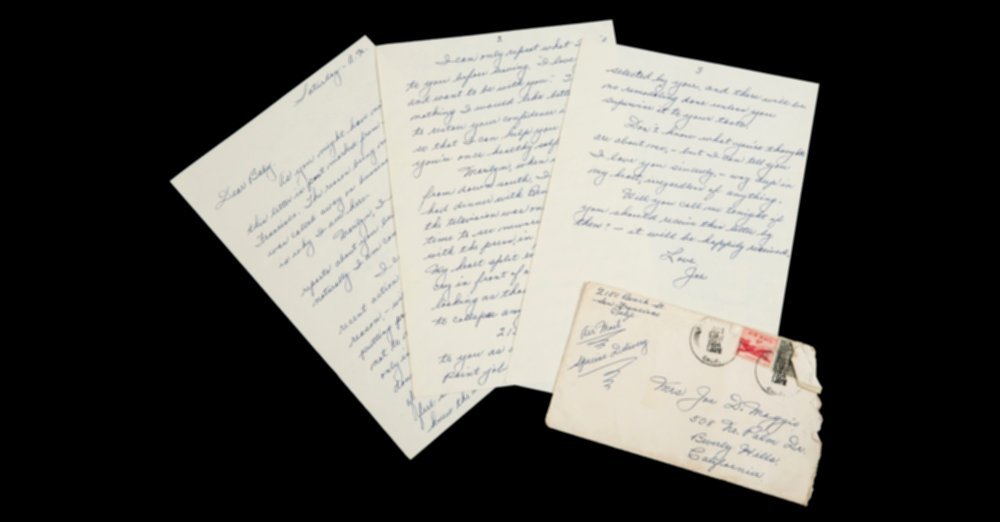 Saturday - A.M.
Dear Baby,
As you might have no
this letter is post marked from
Francisco. The reason being
was called away on business
is why I am here.
Marilyn, I
reports about you
naturally I am con
recent action
reason,
putting
not
only
2
I can only repeat what I
to you before leaving. I love
and want to be with you. T
nothing I would like bett
to restore your confidence
so that I can help you
you're once healthy self
Marilyn, when
from down south, I
had dinner with
the television was on
time to see
with the press, in
My heart split
cry in front of
looking as tho
to collapse any
to you as
Paint job
3
selected by you, and there will be
no remodeling done unless you
supervise it to your taste.
Don't know what you're thoughts
are about me, - but I can tell you
I love you sincerely - way deep in
my heart, regardless of anything.
Will you call me tonight if
you should receive this letter by
then? - it will be happily received.
Love
Joe
2150 Beach St.
San Francisco
Calif.
Air Mail
Special Delivery
AIR MAIL
Mrs Joe D. Maggio
508 No. Palm Dr.
Beverly Hills,
California